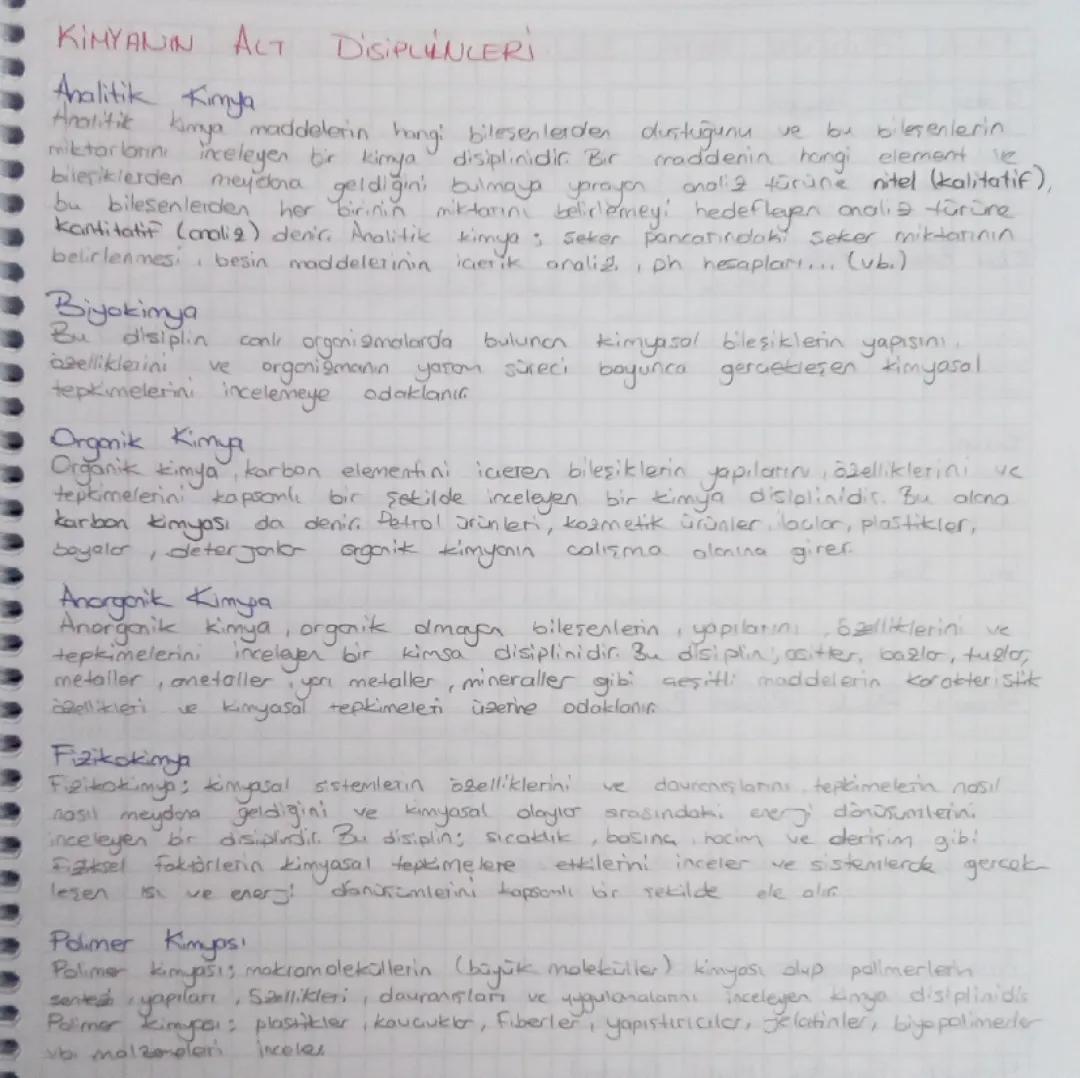 KİMYANIN ALT DİSİPLİNLERİ
Analitik Kimya
Analitik kimya maddelerin hangi bileşenlerden oluştuğunu ve bu bileşenlerin
miktarlarını inceleyen bir kimya disiplinidir. Bir maddenin hangi element ve
bileşiklerden meydana geldiğini bulmaya yarayan analiz türüne nitel (kalitatif),
bu bileşenlerden her birinin miktarını belirlemeyi hedefleyen analiz türüne
kantitatif (analiz) denir. Analitik kimya ; şeker pancarındaki şeker miktarının
belirlenmesi , besin maddelerinin içerik analizi , ph hesapları... (vb.)
Biyokimya
Bu disiplin canlı organizmalarda bulunan kimyasal bileşiklerin yapısını ,
özelliklerini ve organizmanın yaşam süreci boyunca gerçekleşen kimyasal
tepkimelerini incelemeye odaklanır.
Organik Kimya
Organik kimya , karbon elementini içeren bileşiklerin yapılarını , özelliklerini ve
tepkimelerini kapsamlı bir şekilde inceleyen bir kimya dislplinidir. Bu alana
karbon kimyası da denir. Petrol ürünleri, kozmetik ürünler, ilaçlar, plastikler,
boyalar , deterjanlar organik kimyanın çalışma alanına girer.
Anorganik Kimya
Anorganik kimya , organik olmayan bileşenlerin , yapılarını , özelliklerini ve
tepkimelerini inceleyen bir kimsa disiplinidir. Bu disiplin ; asitler, bazlar, tuzlar,
metaller , ametaller , yarı metaller , mineraller gibi çeşitli maddelerin karakteristik
özellikleri ve kimyasal tepkimeleri üzerine odaklanır.
Fizikokimya
Fizikokimya ; kimyasal sistemlerin özelliklerini ve davranışlarını, tepkimelerin nasıl
nasıl meydana geldiğini ve kimyasal olaylar arasındaki enerji dönüşümlerini
inceleyen bir disiplindir. Bu disiplin ; sıcaklık , basınç , hacim ve derişim gibi
fiziksel faktörlerin kimyasal tepkimelere etkilerini inceler ve sistemlerde gerçek-
leşen ısı ve enerji dönüşümlerini kapsamlı bir şekilde ele alır.
Polimer Kimyası
Polimer kimyası ; makromoleküllerin (büyük moleküller) kimyası olup polimerlerin
sentezi , yapıları , özellikleri , davranışları ve uygulamalarını inceleyen kimya disiplinidir
Polimer kimyası ; plastikler , kauçuklar , fiberler , yapıştırıcılar , jelatinler , biyopolimerler
vb. malzemeleri inceler